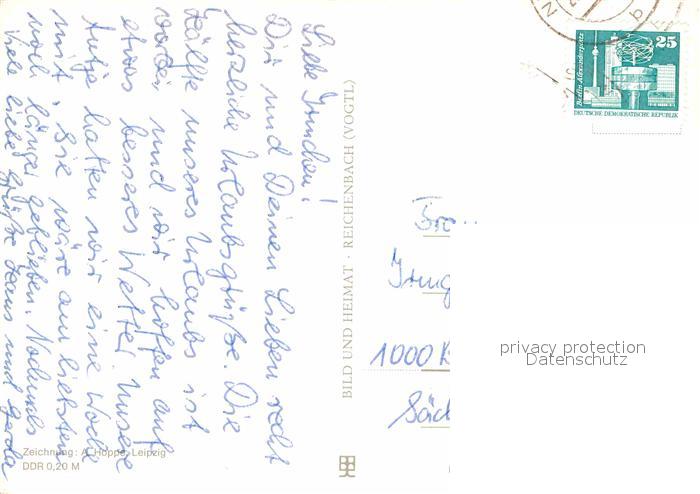 Liebe Irmchen!
Dir und Deinen Lieben recht
herzliche Urlaubsgrüße. Die
Hälfte unseres Urlaubs ist
vorbei und wir hoffen auf
etwas besseres Wetter. Unsere
Antje hatten wir eine Woche
mit. Sie wäre am liebsten
noch länger geblieben. Nochmals
viele liebe Grüße Hans und Gerda
Zeichnung: A. Hoppe, Leipzig
DDR 0,20 M
BILD UND HEIMAT · REICHENBACH (VOGTL)
25
Berlin, Alexanderplatz
DEUTSCHE DEMOKRATISCHE REPUBLIK
Irmg
1000 B
Säch
privacy protection
Datenschutz